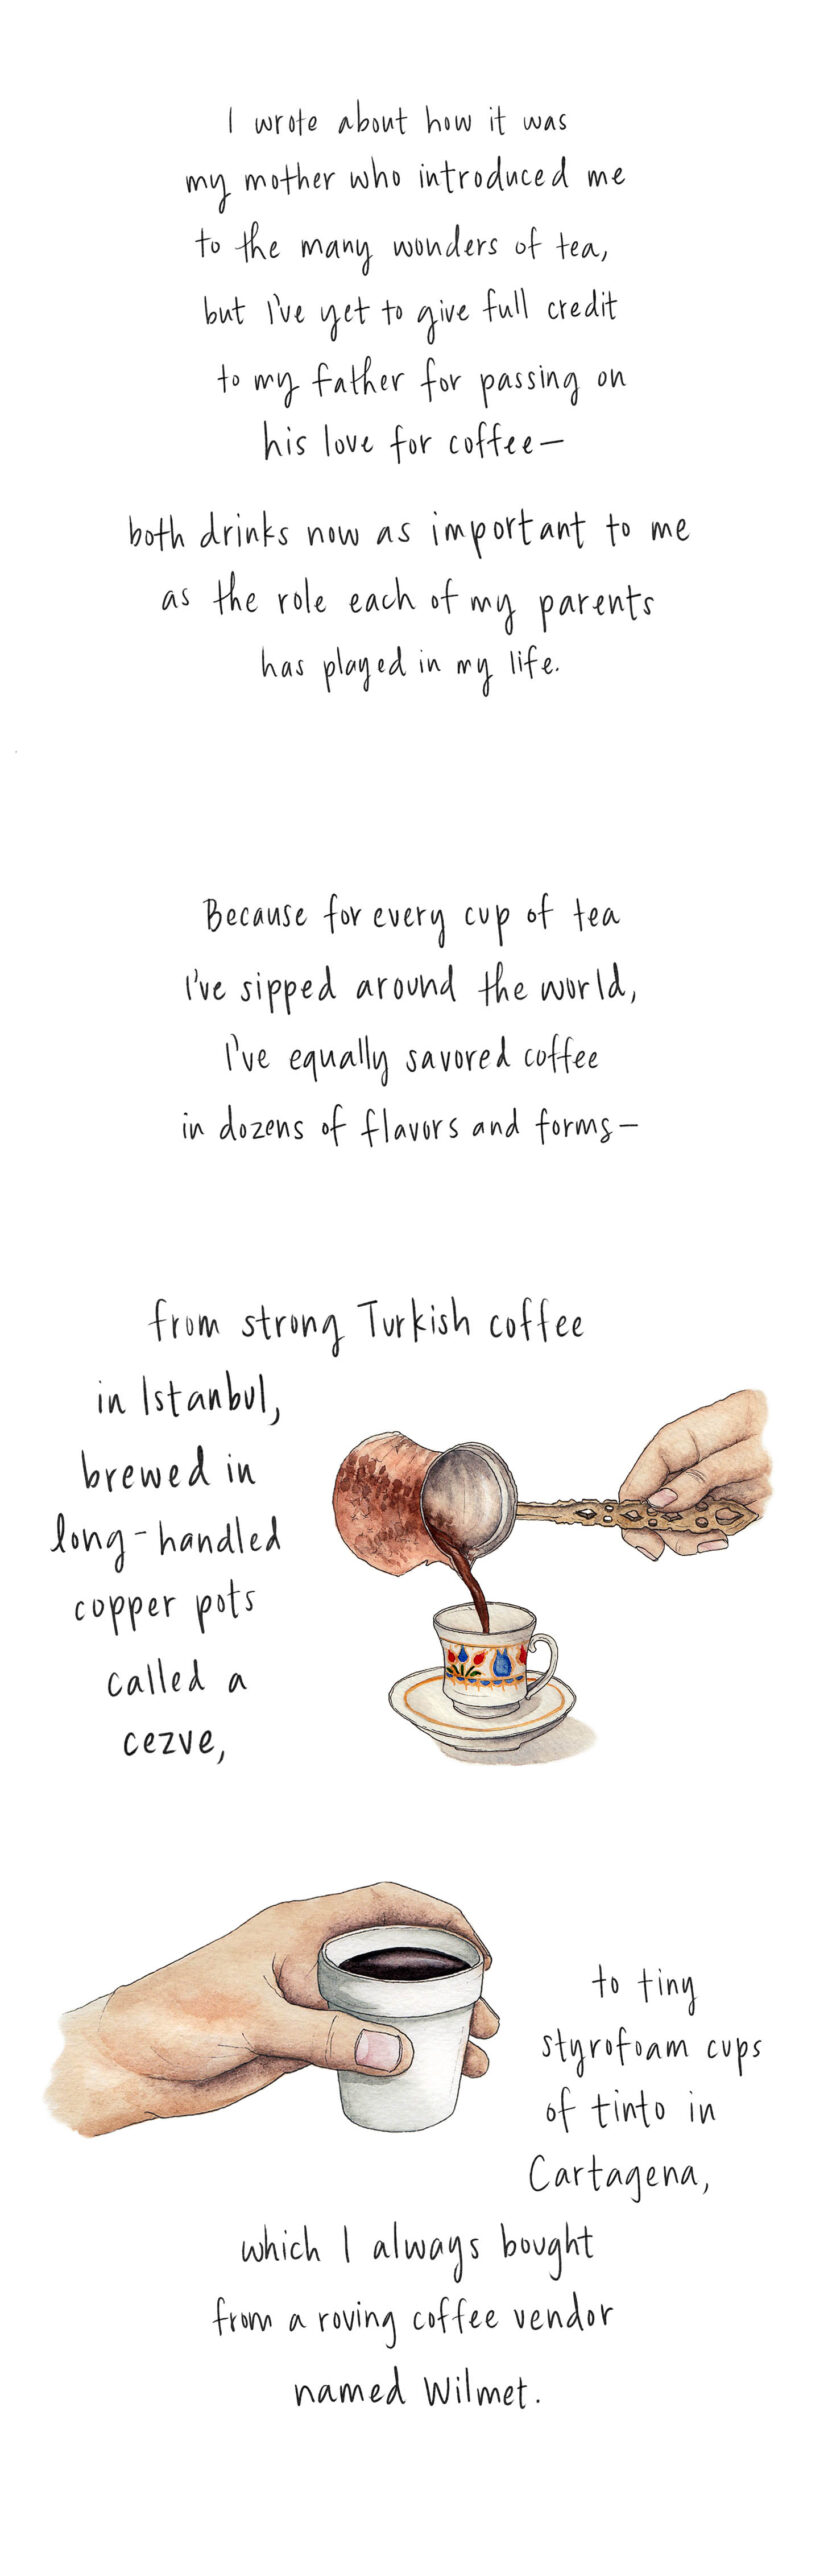 I wrote about how it was
my mother who introduced me
to the many wonders of tea,
but I've yet to give full credit
to my father for passing on
his love for coffee—
both drinks now as important to me
as the role each of my parents
has played in my life.
Because for every cup of tea
I've sipped around the world,
I've equally savored coffee
in dozens of flavors and forms—
from strong Turkish coffee
in Istanbul,
brewed in
long-handled
copper pots
called a
cezve,
to tiny
styrofoam cups
of tinto in
Cartagena,
which I always bought
from a roving coffee vendor
named Wilmet.